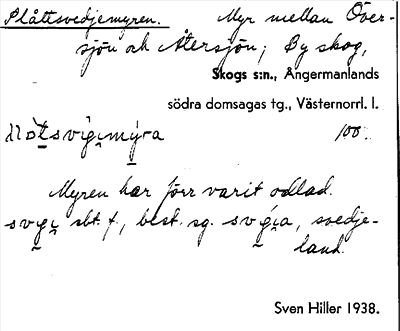 Slåttsvedjemyren. Myr mellan Över-
sjön och Återsjön; By skog,
Skogs s:n., Ångermanlands
södra domsagas tg., Västernorrl. l.
100.
Myren har förr varit odlad.
svigi sbt. f., best. sg. svigia, svedje-
land.
Sven Hiller 1938.